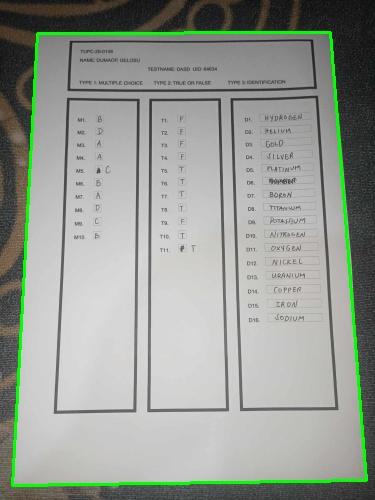 TUPC-20-0146
NAME: DUMAOP, GELOSU
TESTNAME: DASD UID: 84634
TYPE 1: MULTIPLE CHOICE TYPE 2: TRUE OR FALSE TYPE 3: IDENTIFICATION
M1. B
M2. D
M3. A
M4. A
M5. C
M6. B
M7. A
M8. D
M9. C
M10. B
T1. F
T2. F
T3. F
T4. F
T5. T
T6. T
T7. T
T8. T
T9. F
T10. T
T11. T
D1. HYDROGEN
D2. HELIUM
D3. GOLD
D4. SILVER
D5. PLATINUM
D6.
D7. BORON
D8. TITANIUM
D9. POTASSIUM
D10. NITROGEN
D11. OXYGEN
D12. NICKEL
D13. URANIUM
D14. COPPER
D15. IRON
D16. SODIUM